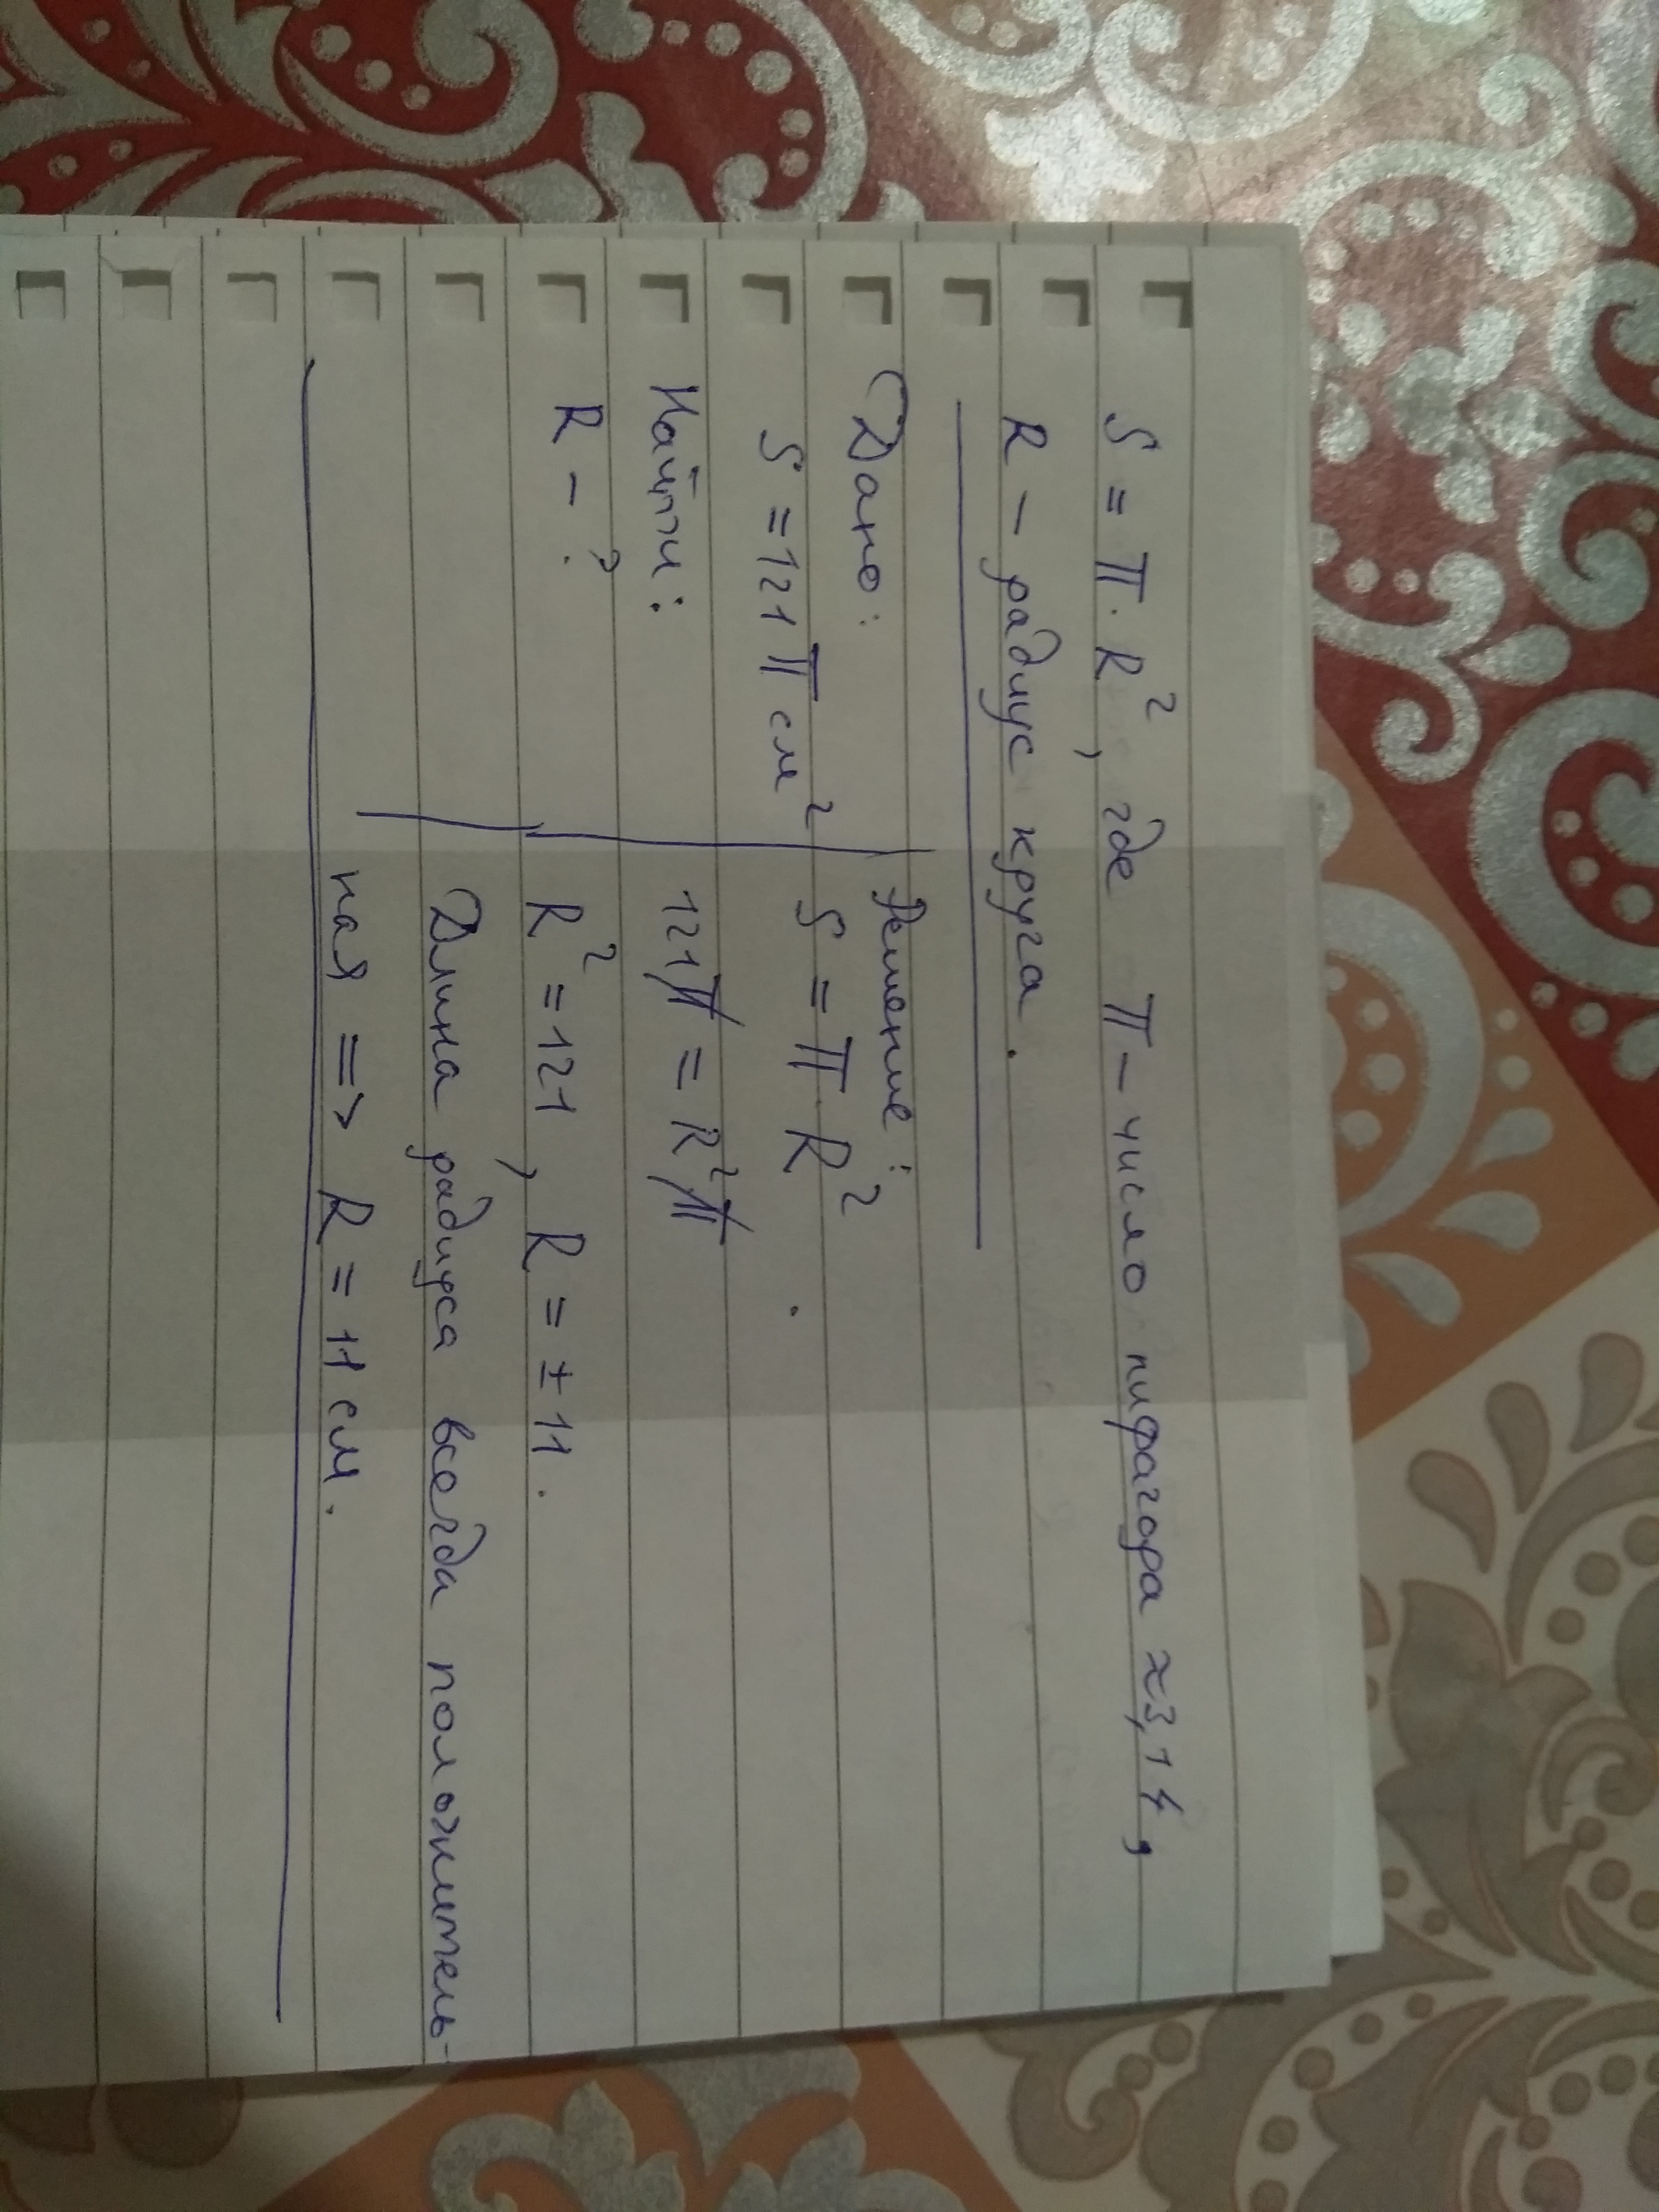 S = π · R², где π – число пифагора ≈3,14,
R – радиус круга.
Дано:
S = 121 π см²
Найти:
R – ?
Решение:
S = π · R²
121π = R²π
R² = 121, R = ± 11.
Длина радиуса всегда положитель-
ная => R = 11 см.